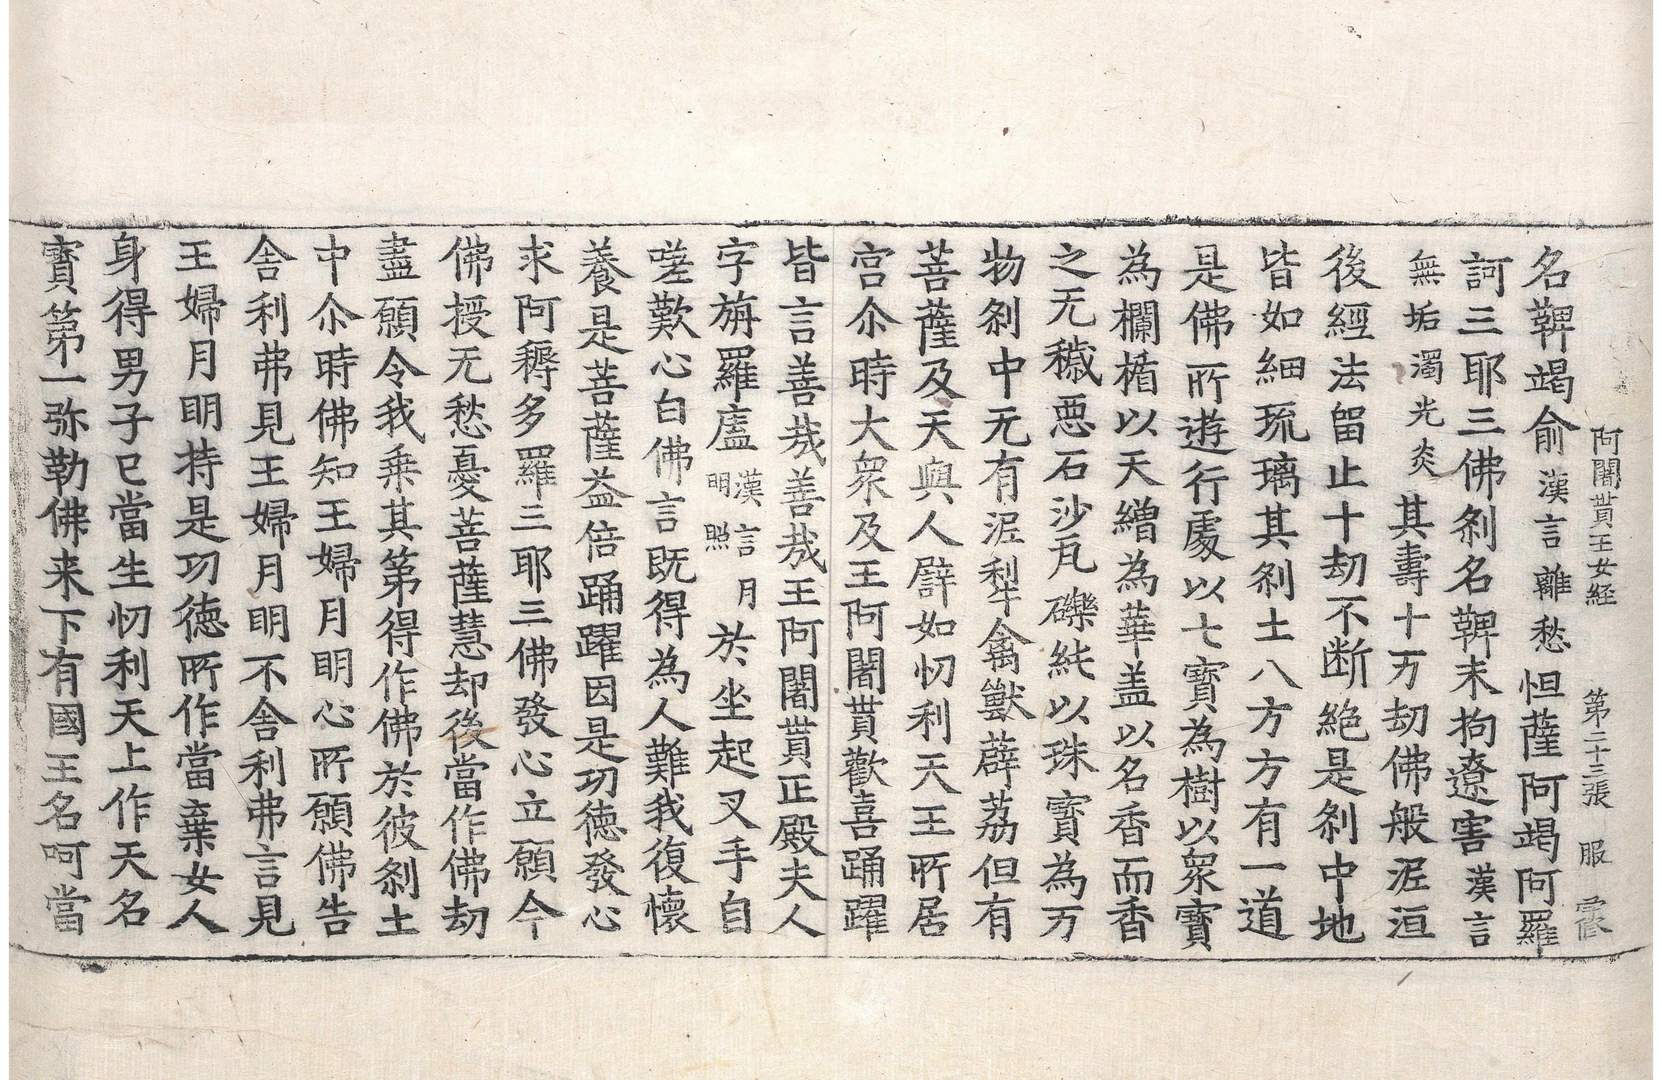 阿闍貰王女経　第二十三張　服
名鞞竭俞漢言離愁怛薩阿竭阿羅
訶三耶三佛剎名鞞末拘遼害漢言
無垢濁光炎其壽十万劫佛般泥洹
後經法留止十劫不断絶是剎中地
皆如細琉璃其剎土八方方有一道
是佛所遊行處以七寶為樹以衆寶
為欄楯以天繒為華盖以名香而香
之无穢惡石沙瓦礫純以珠寶為万
物剎中无有泥犁禽獸薜荔但有
菩薩及天與人辟如忉利天王所居
宫尒時大衆及王阿闍貰歡喜踊躍
皆言善㢤善㢤王阿闍貰正殿夫人
字旃羅廅漢言月明照於坐起叉手自
嗟歎心白佛言既得為人難我復懷
養是菩薩益倍踊躍因是功德發心
求阿耨多羅三耶三佛發心立願今
佛授无愁憂菩薩慧却後當作佛劫
盡願令我乗其第得作佛於彼剎土
中尒時佛知王婦月明心所願佛告
舎利弗見王婦月明不舎利弗言見
王婦月明持是功德所作當棄女人
身得男子已當生忉利天上作天名
寶第一弥勒佛来下有國王名呵當